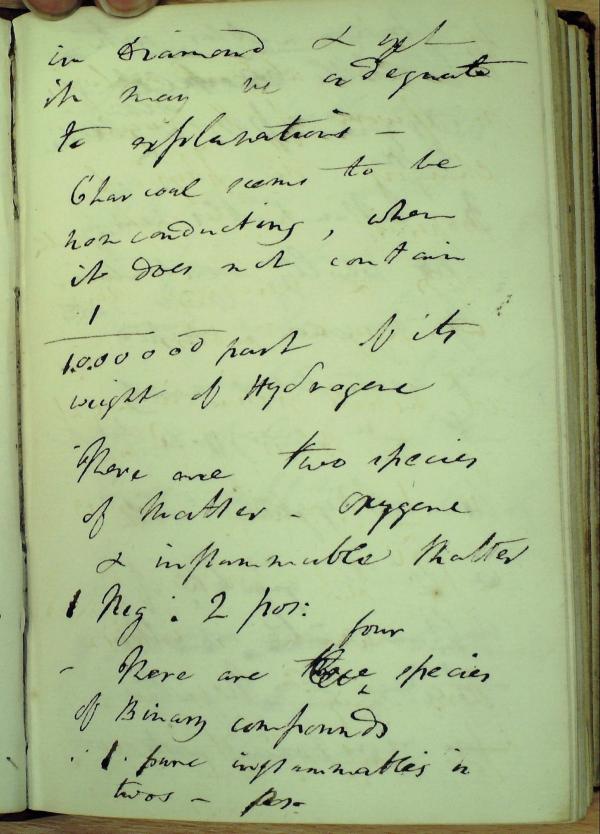 in Diamond & yet
it may be adequate
to explanations —
Charcoal seems to be
nonconducting, when
it does not contain
1
1000000 part of its
weight of Hydrogene
There are two species
of Matter – Oxygene
& inflammable Matter
1 Neg: 2 pos:
four
– There are three species
of Binary compounds
1. pure inflammables in
twos – pos: